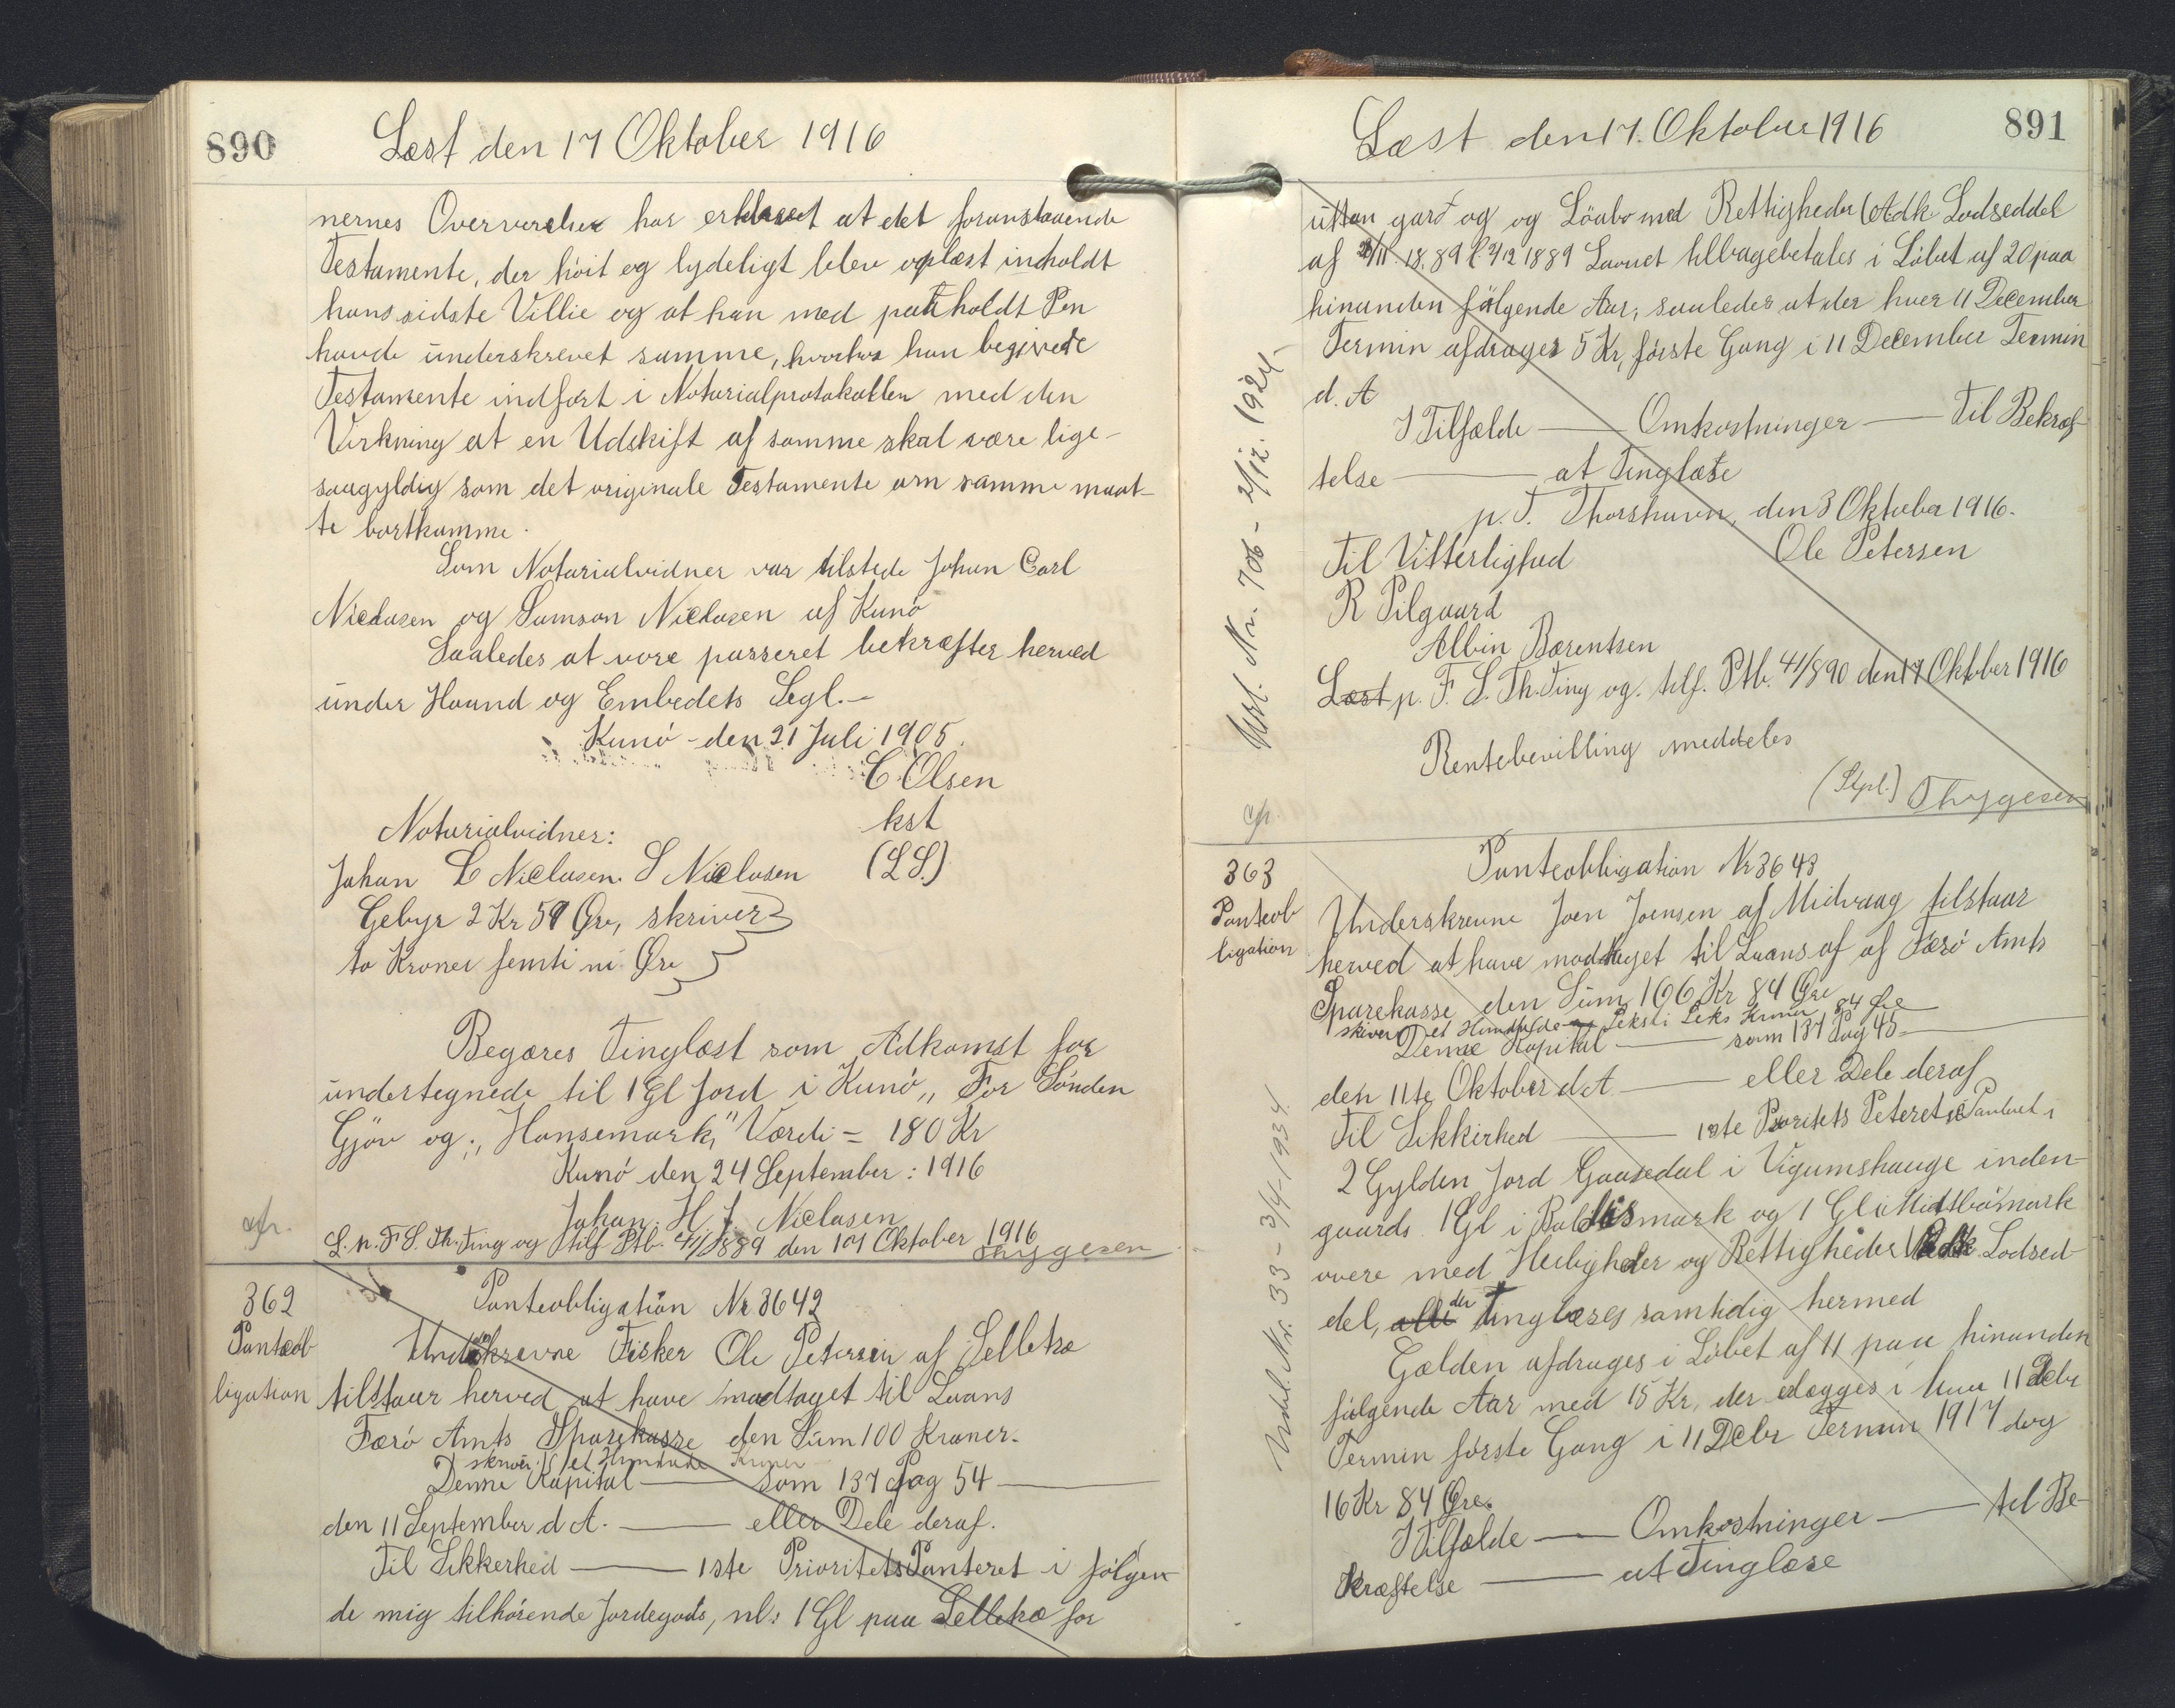 890
Læst den 17 Oktober 1916
nernes Overværelse har erklæret at det foranstaaende
Testamente, der höit og lydeligt blev oplæst indholdt
hans sidste Villie og at han med paaholdt Pen
havde underskrevet samme, hvorhos han begjærede
Testamente indført i Notarialprotokollen med den
Virkning at en Udskift af samme skal være lige-
saagyldig som det originale Testamente om samme maat-
te bortkomme.
Som Notarialvidner var tilstede Johan Carl
Niclasen og Samson Niclasen af Kunö
Saaledes at være passeret bekræfter herved
under Haand og Embedets Segl.-
Kunö - den 21 Juli 1905.
C. Olsen
kst
Notarialvidner:
Johan C Niclasen. S Niclasen (L S.)
Gebyr 2 Kr 59 Øre, skriver
to Kroner femti ni Øre
Begæres Tinglæst som Adkomst for
undertegnede til 1 Gl Jord i Kunö „ For Sönden
Gjöv og „ Hansemark," Værdi = 180 Kr
Kunö den 24 September : 1916
Johan. H. J. Niclasen
cfr. L. p. F S. Th. Ting og tilf Ptb. 41/889 den 17 Oktober 1916
Thygesen
362
Panteob
ligation
Panteobligation Nr 3642
Underskrevne Fisker Ole Petersen af Selletræ
tilstaar herved at have modtaget til Laans
Færö Amts Sparekasse den Sum 100 Kroner.
skriver et Hundrede Kroner
Denne Kapital — som 137 Pag 54 —
den 11 September d A. — eller Dele deraf.
Til Sikkerhed — 1ste Prioritets Panteret i fölgen
de mig tilhörende Jordegods, nl: 1 Gl paa Selletræ for
891
Læst den 17. Oktober 1916
uttan gard og og Löabo med Rettigheder (Adk Lodseddel
af 1889 1889 Laanet tilbagebetales i Löbet af 20 paa
hinanden fölgende Aar, saaledes at der hver 11 December
Termin afdrages 5 Kr, förste Gang i 11 December Termin
d. A
I Tilfælde — Omkostninger — Til Bekræf-
telse — at Tinglæse
p. T. Thorshavn, den 3 Oktober 1916.
Til Vitterlighed Ole Petersen
R Pilgaard
Albin Bærentsen
Læst p. F. S. Th. Ting og. tilf. Ptb. 41/890 den 17 Oktober 1916
Rentebevilling meddeles
(Stpl.) Thygesen
Nr. 706 - 2/12. 1924.
cfr.
363
Panteob
ligation
Panteobligation Nr 3643
Underskrevne Joen Joensen af Midvaag tilstaar
herved at have modtaget til Laans af af Færö Amts
Sparekasse den Sum 166 Kr 84 Øre
skiver et Hundrede og Seksti Seks Kroner 84 Øre
Denne Kapital — som 137 Pag 45 —
den 11te Oktober d A — eller Dele deraf
Til Sikkerhed — 1ste Prioritets
2 Gylden Jord Gaasedal i Vigumshauge inden-
gaards 1 Gl i mark og 1 Gl i
overe med Herligheder og Rettigheder Lodsed
del, der Tinglæses samtidig hermed
Gælden afdrages i Löbet af 11 paa hinanden
fölgende Aar med 15 Kr, der erlægges i hver 11 Decbr
Termin förste Gang i 11 Decbr Termin 1917 dog
16 Kr 84 Øre.
I Tilfælde — Omkostninger — til Be-
kræftelse — at Tinglæse
Nr. 33 - 3/4-1934.